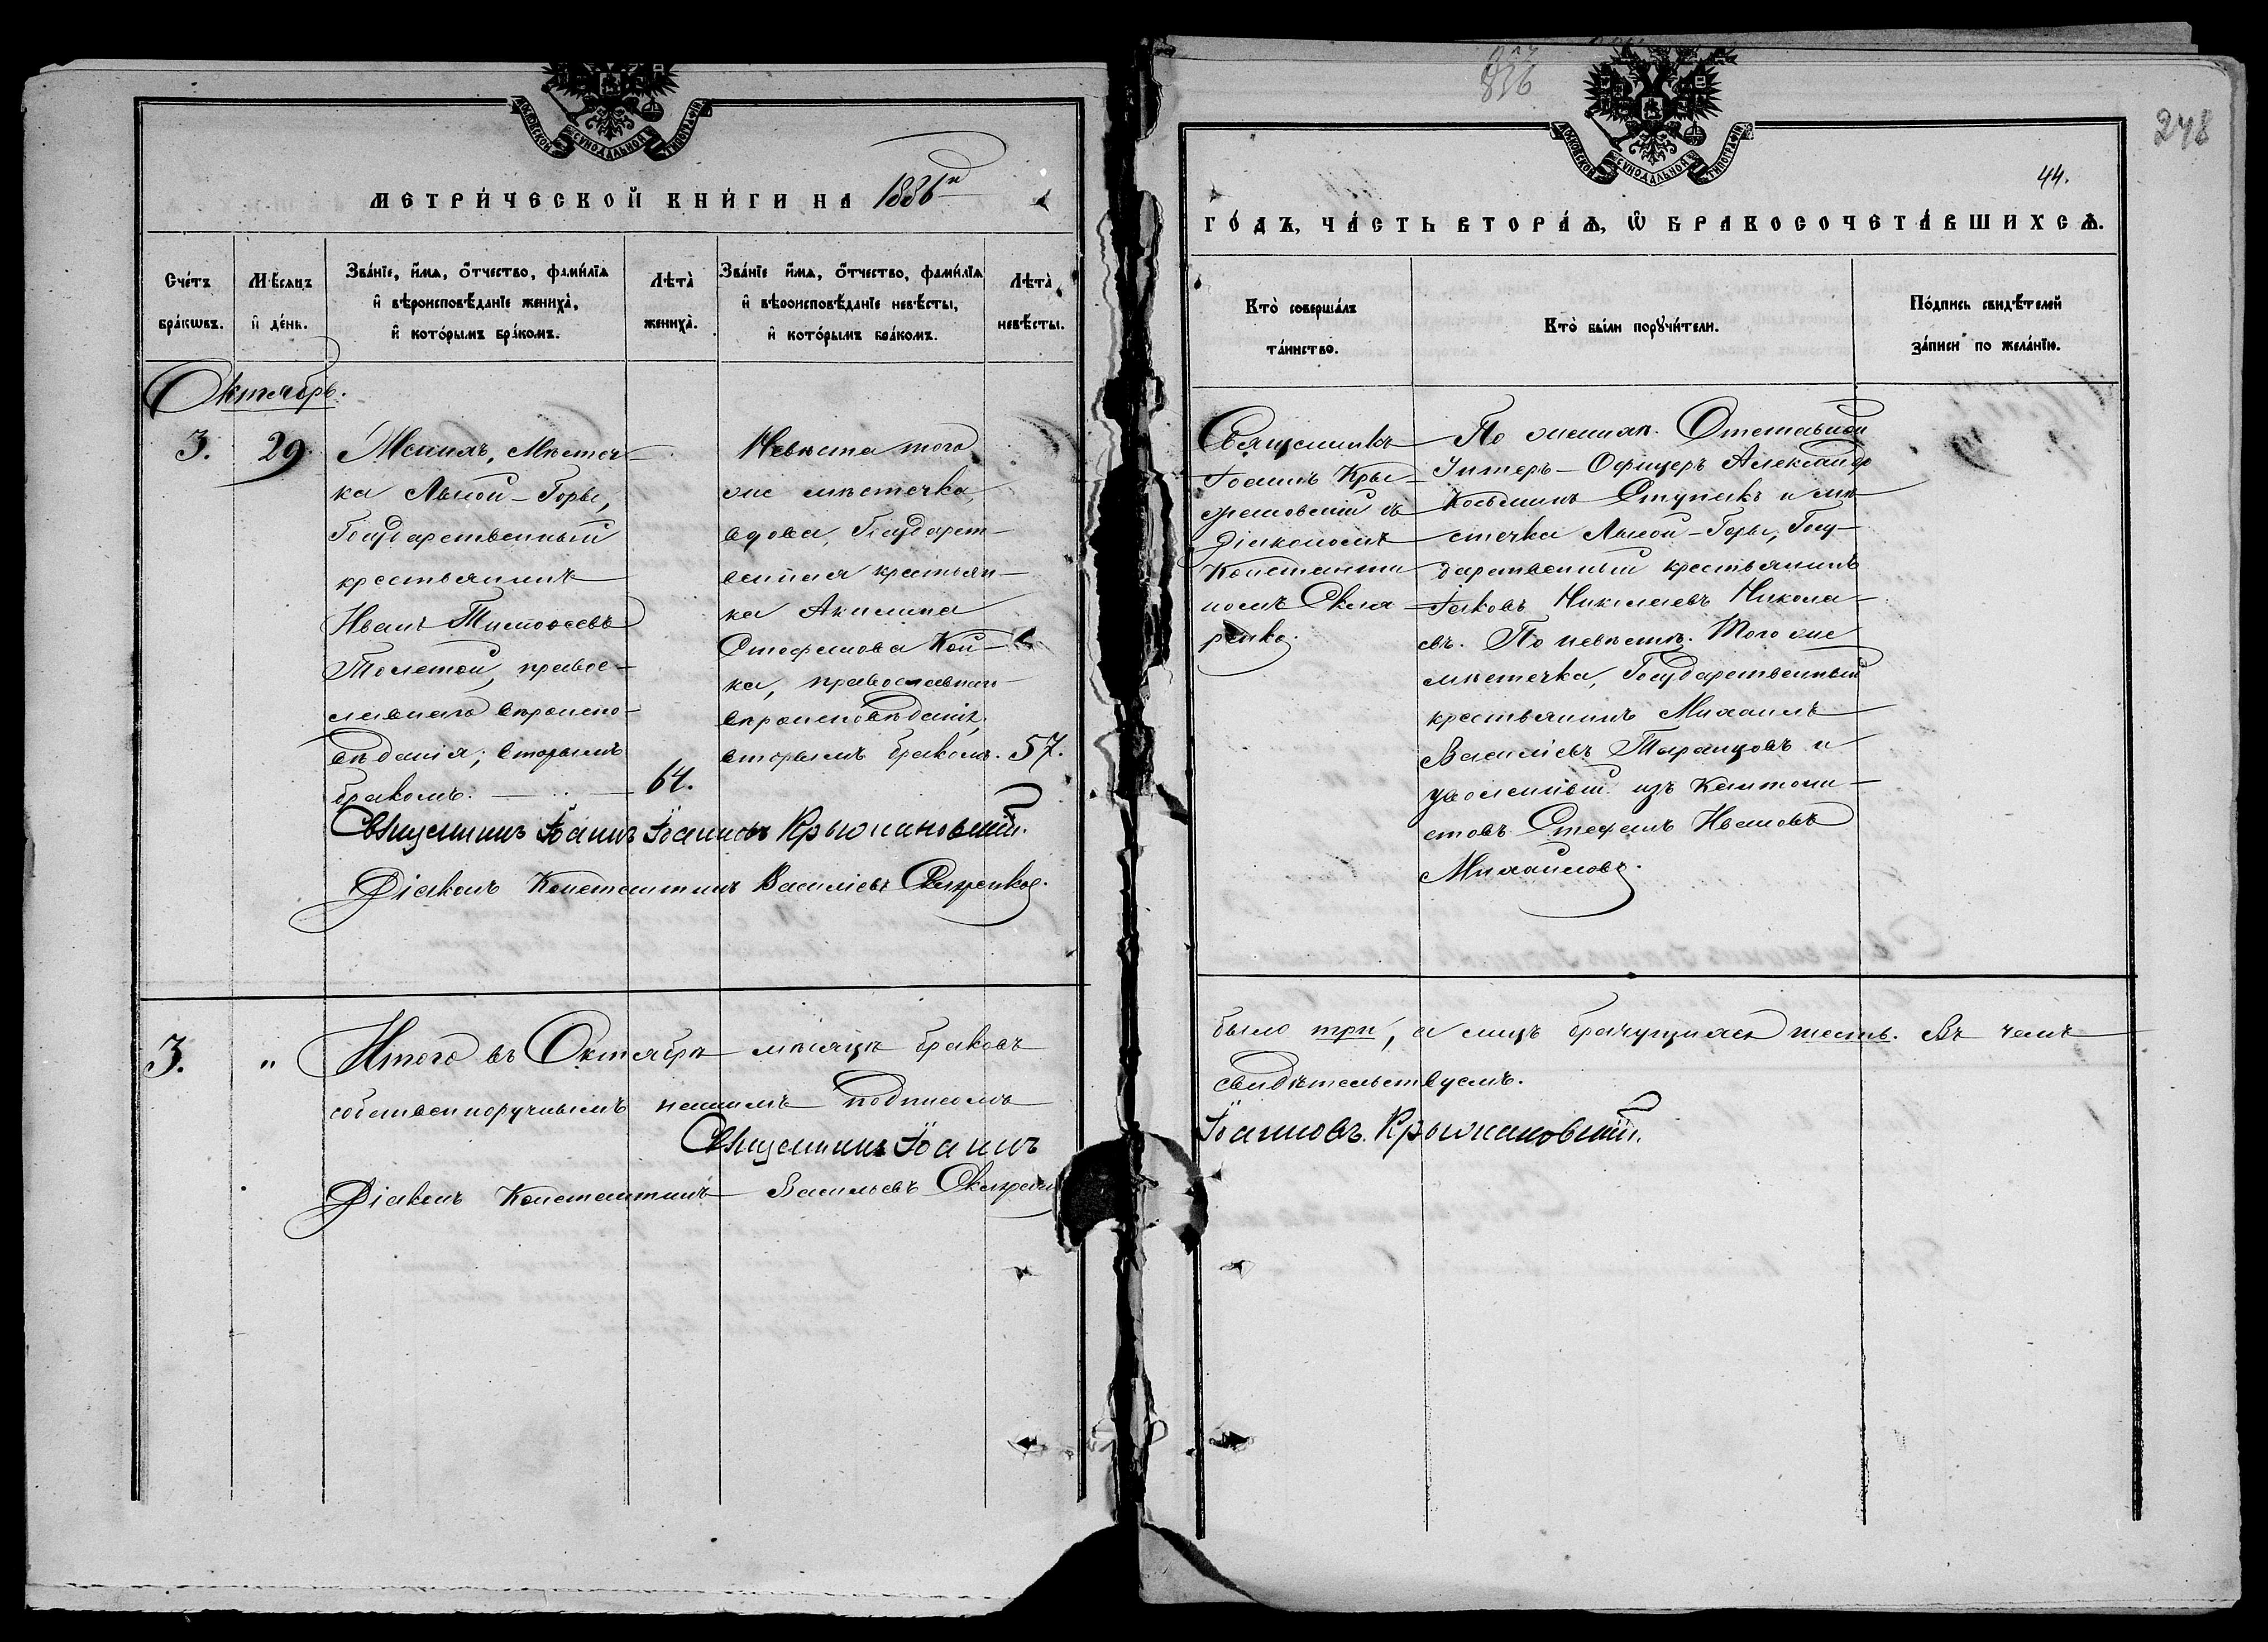 МОСКОВСКОЙ СѴНОДАЛЬНОЙ ТИПОГРАФІИ
МЕТРИ́ЧЕСКОЙ КНИ́ГИ НА 1886й
Сче́тъ бра́кωвъ.
Мѣ́сяцъ и҆ де́нь.
Зва́нїе, и҆́мѧ, ѻ҆́тчество, фами́лїѧ
и҆ вѣроисповѣ́данїе жениха̀,
и҆ кото́рымъ бра́комъ.
Лѣта̀ жениха̀.
Зва́нїе и҆́мѧ, ѻ҆́тчество, фами́лїѧ
и҆ вѣроисповѣ́данїе невѣ́сты,
и҆ кото́рымъ бра́комъ.
Лѣта̀ невѣ́сты.
Октябрь.
3. 29.
Женихъ, Мѣстеч-
ка Лысой-Горы,
Государственный
крестьянинъ
Иванъ Тимоѳеевъ
Толстой, право-
славнаго вѣроиспо-
вѣданія; вторымъ
бракомъ.
64.
Невѣста того
же мѣстечка,
вдова, Государст-
венная крестьян-
ка Акилина
Стефанова
ка, православнаго
вѣроисповѣданія,
вторымъ бракомъ. 57.
Священникъ Іоаннъ Іоанновъ Крыжановскій.
Діаконъ Константинъ Василіевъ Скляренко.
3. " Итого въ Октябрѣ мѣсяцѣ браковъ
собственноручнымъ нашимъ подписомъ
Священникъ Іоаннъ
Діаконъ Константинъ Васильевъ
836
248
МОСКОВСКОЙ СѴНОДАЛЬНОЙ ТИПОГРАФІИ
44.
ГО́ДЪ, ЧА́СТЬ ВТОРА́Ѧ, Ѿ БРАКОСОЧЕТА́ВШИХСѦ.
Кто̀ соверша́лъ та́инство.
Кто̀ бы́ли порꙋчи́тели.
По́дпись свидѣ́телей за́писи по жела́нїю.
Священникъ
Іоаннъ Кры-
жановскій съ
Діакономъ
Константи
номъ Скля
ренко.
По женихѣ. Отставной
Унтеръ-Офицеръ Александръ
Козьминъ Ступакъ и мѣ
стечка Лысой-Горы, Госу-
дарственный крестьянинъ
Іаковъ Николаевъ Никола-
евъ. По невѣстѣ. Того же
мѣстечка, Государственный
крестьянинъ Михаилъ
Василіевъ Таранцовъ и
уволенный изъ Кантони-
стовъ Стефанъ Ивановъ
Михайловъ.
было три, а лицъ брачущихся шесть. Въ чемъ
свидѣтельствуемъ.
Іоанновъ Крыжановскій.